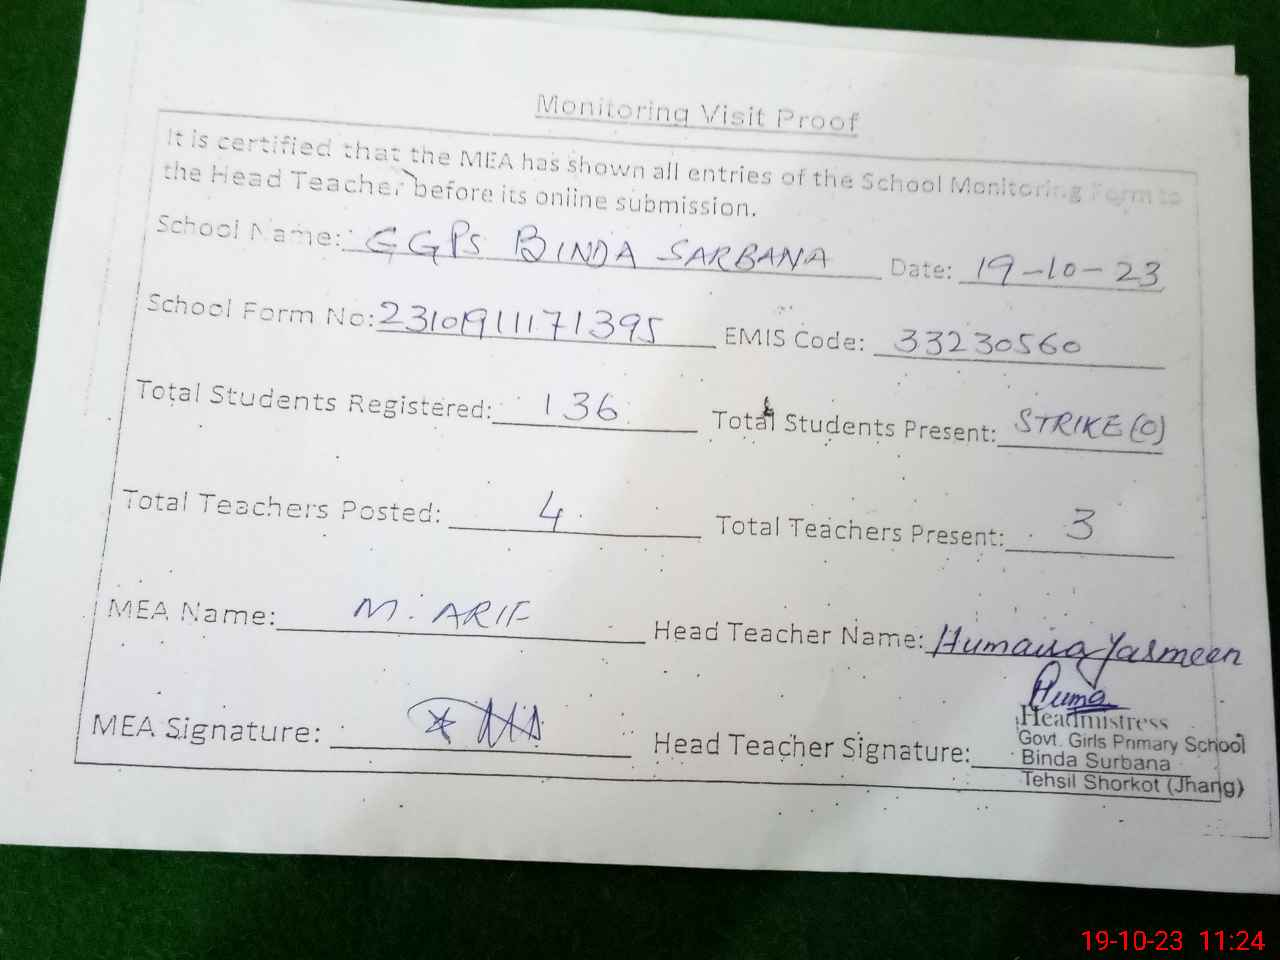 Monitoring Visit Proof
It is certified that the MEA has shown all entries of the School Monitoring Form to
the Head Teacher before its online submission.
School Name: GGPS BINDA SARBANA Date: 19-10-23
School Form No: 2310191171395 EMIS Code: 33230560
Total Students Registered: 136 Total Students Present: STRIKE (0)
Total Teachers Posted: 4 Total Teachers Present: 3
MEA Name: M. ARIF Head Teacher Name: Humaira Yasmeen
Huma
MEA Signature: Head Teacher Signature:
Headmistress
Govt. Girls Primary School
Binda Surbana
Tehsil Shorkot (Jhang)
19-10-23 11:24